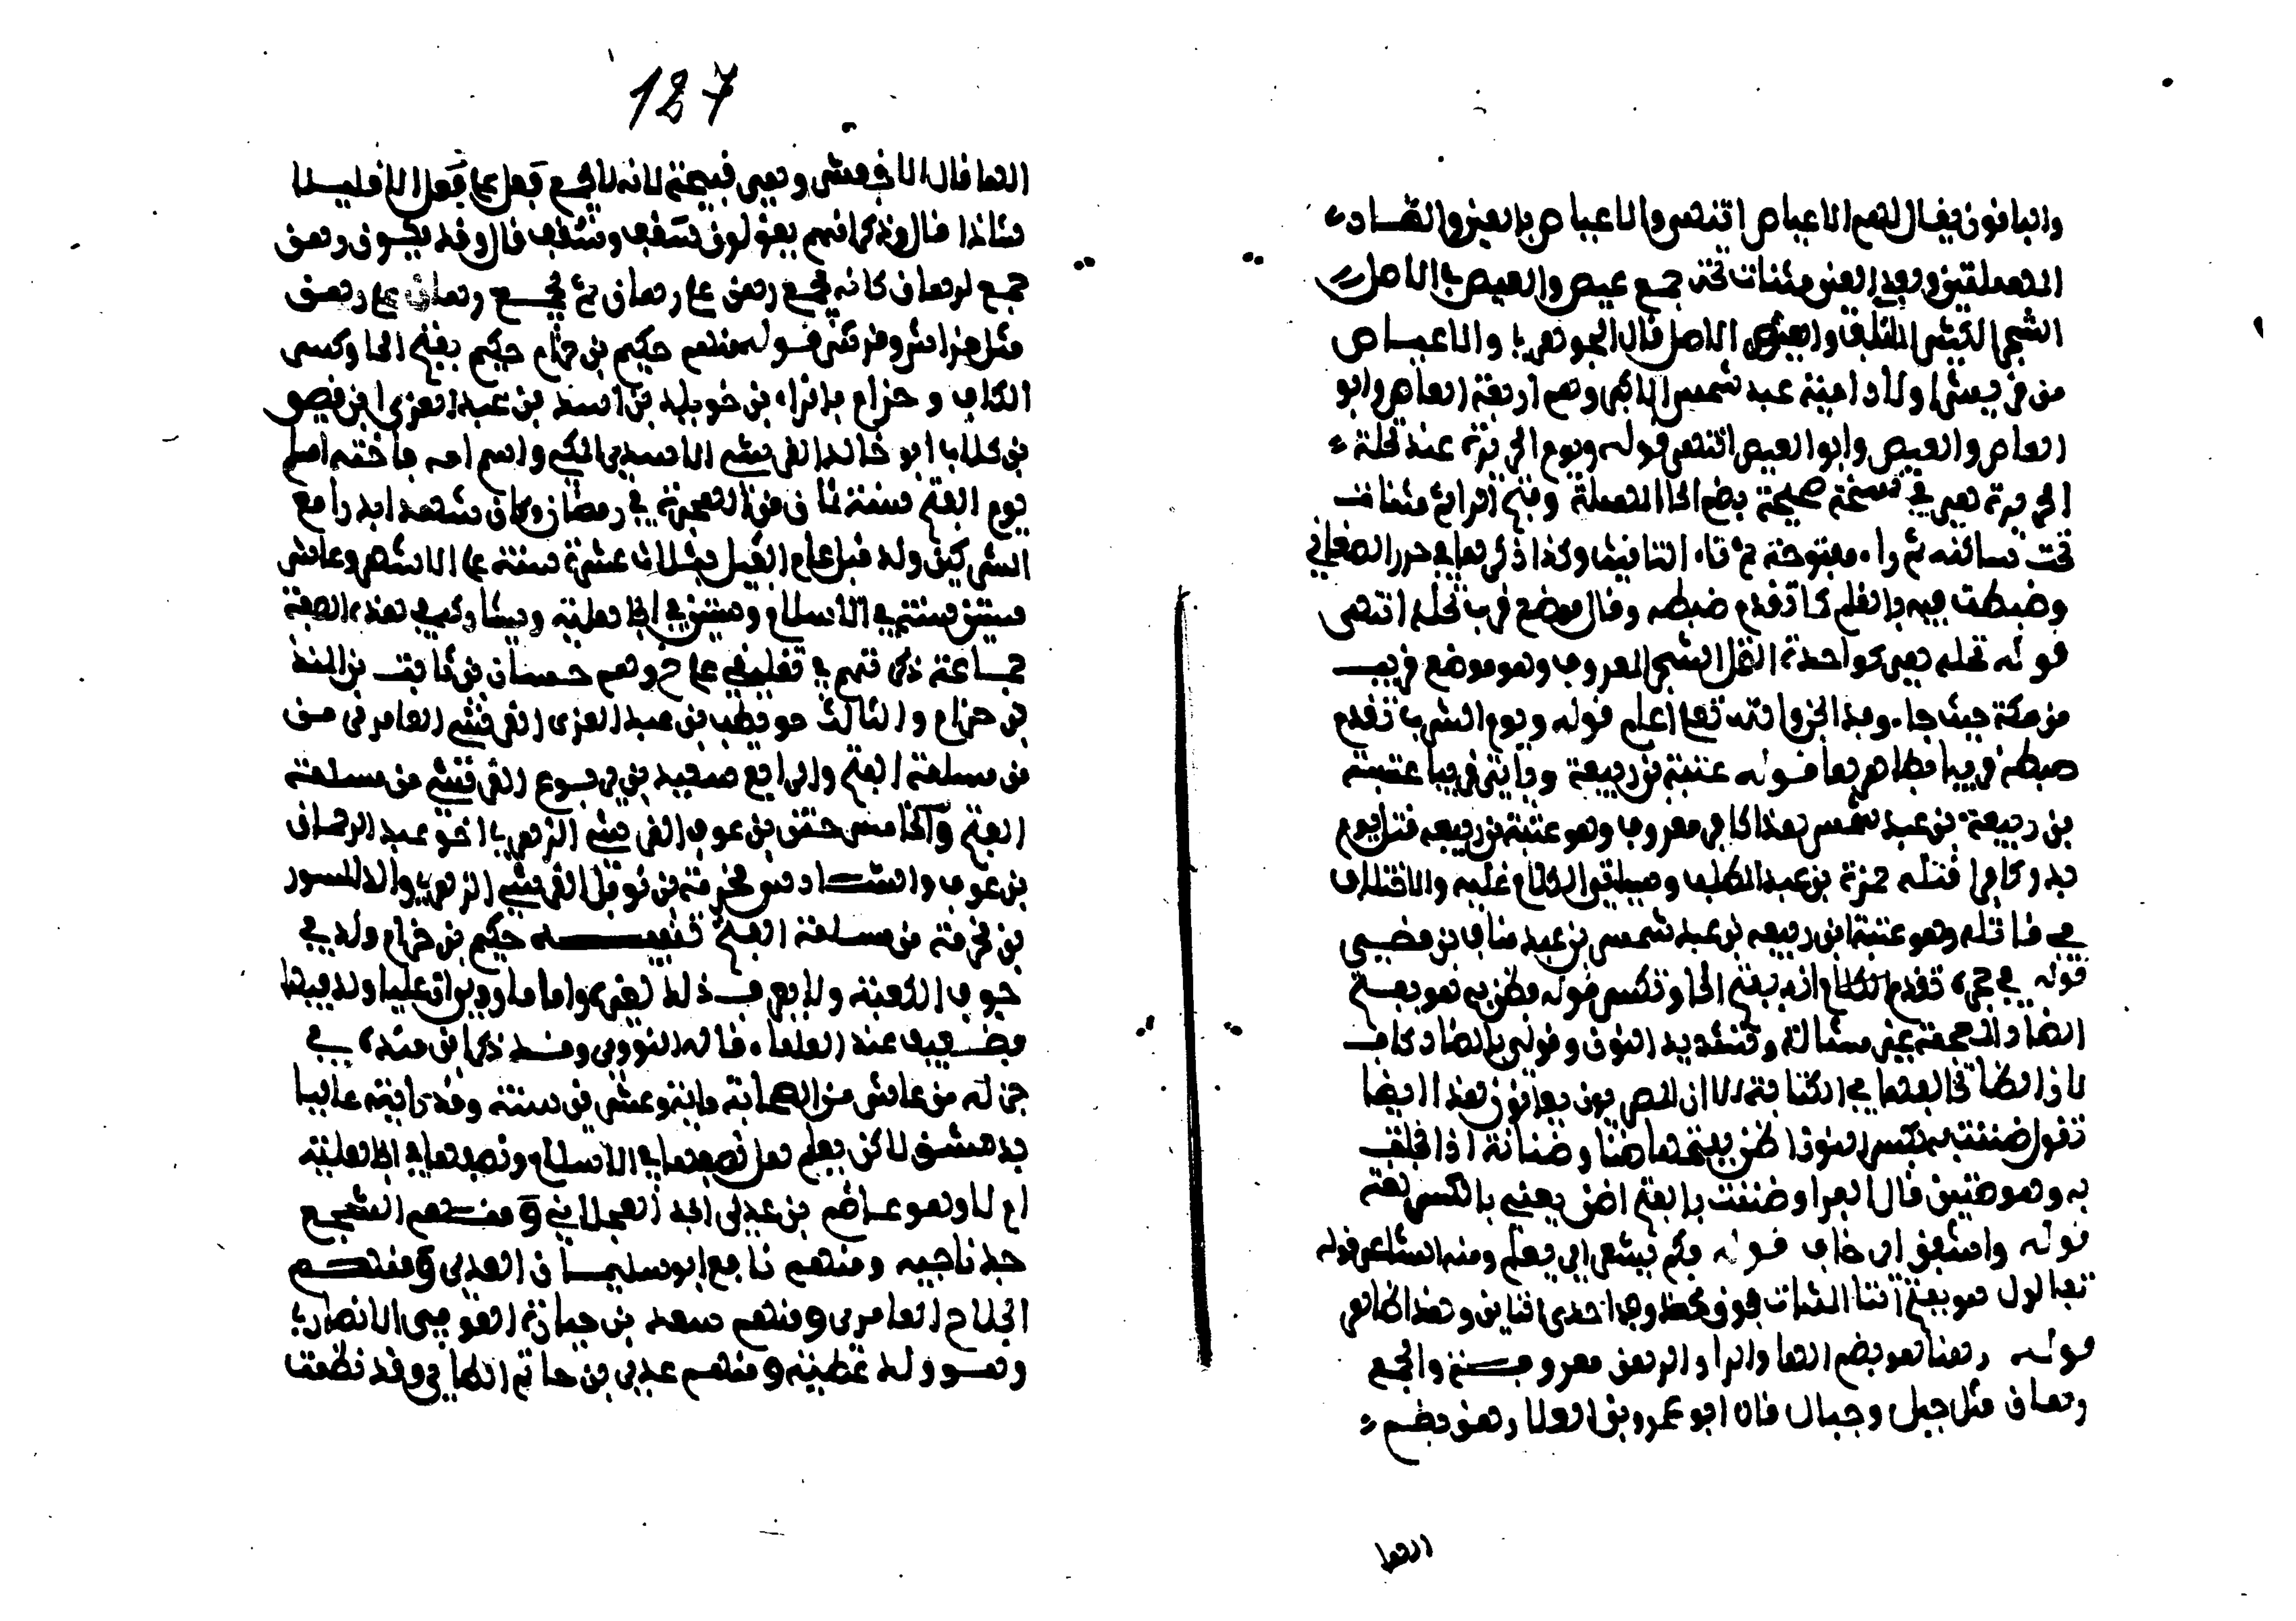 والباقون يقال لهم الاعياص انتهى والاعياص بالعين والصاد
المهملتين وبعد العين مثنات تحت جمع عيص والعيص بالاصل
الشجر الكثير الملتف والعيص الاصل قال الجوهري والاعياص
من قريش اولاد امية بن عبد شمس الاكبر وهم اربعة العاص وابو
العاص والعيص وابو العيص انتهى قوله ويوم الحريرة عند نخلة
الحريرة هي في نسخة صحيحة بضم الحا المهملة وفتح الرا ثم مثنات
تحت ساكنه ثم راء مفتوحة ثم تاء التانيث وكذا ذكرها في حرر الصغاني
وضبطت فيه بالقلم كما تقدم ضبطه وقال موضع قرب نخلة انتهى
قوله نخله هي كواحدة النخل الشجر المعروف وهو موضع قريب
من مكة حيث جاء وهذا الخ والله تعا اعلم قوله ويوم الشرب تقدم
ضبطه قريبا فظاهرها قوله عتبة بن ربيعة وياتي قريبا عتبة
بن ربيعة بن عبد شمس هذا كافر معروف وهو عتبة بن ربيعه قتل يوم
بدر كافرا قتله حمزة بن عبد المطلب وسياتي الكلام عليه والاختلاف
في قاتله وهو عتبة ابن ربيعه بن عبد شمس بن عبد مناف بن قصي
قوله في حجره تقدم الكلام انه بفتح الحا وتكسر قوله فظن به هو بفتح
الضاد المعجمة غير مشالة وتشديد النون وقوله بالضاد كاف
لان الظا تخالفها في الكتابة الا ان المصريون يعانون هذا ايضا
تقول ضننت به بكسر النون اظن بفتحها ضنا وضنانة اذا بخلت
به وهو ضنين قال الفرا وضننت بالفتح اضن يعني بالكسر لغة
قوله واشفق اى خاف قوله فلم يشعر اى يعلم ومنه الشاعر قوله
تعالوا هو بفتح اتنا المثنات فوق وهذا ظاهر
قوله رهنا هو بضم الها والراء والرهن معروف والجمع
رهان مثل جبل وجبال قال ابو عمرو بن العلا رهن بضم
الها
127
الها قال الاخفش وهي قبيحة لانه لا يجمع فعل على فعل الا قليلا
شاذا قال وذكر انهم يقولون سقف وسقف قال وقد يكون رهن
جمع لرهان كانه يجمع رهن على رهان ثم يجمع رهان على رهن
مثل فراش وفرش قوله منهم حكيم بن حزام حكيم بفتح الحا وكسر
الكاف وحزام بالزاء بن خويلد بن اسد بن عبد العزى ابن قصي
بن كلاب ابو خالد القرشي الاسدي المكي واسم امه فاختة اسلم
يوم الفتح سنة ثمان من الهجرة في رمضان وكان شهد بدرا مع
المشركين ولد قبل عام الفيل بثلاث عشرة سنة على الاشهر وعاش
ستين سنة في الاسلام وستين في الجاهلية ويشاركه في هذه الصفة
جماعة ذكرتهم في تعليقي على خ وهم حسان بن ثابت بن المنذر
بن حرام والثالث حويطب بن عبد العزى القرشي العامري من
من مسلمة الفتح والرابع سعيد بن يربوع القرشي من مسلمة
الفتح والخامس حمنن بن عوف القرشي الزهري اخو عبد الرحمان
بن عوف والسادس مخرمة بن نوفل القرشي الزهري والد المسور
بن مخرمة من مسلمة الفتح تنبيه حكيم بن حزام ولد في
جوف الكعبة ولا يعرف ذلك لغيره واما ما روي ان عليا ولد فيها
فضعيف عند العلماء قاله النووي وقد ذكر ابن منده في
جزء له من عاش من الصحابة ماية وعشرين سنة وقد رايته عاليا
بدمشق لاكن يعلم هل نصفها في الاسلام ونصفها في الجاهلية
ام لا وهو عاصم بن عدي الجد العجلاني ومنهم المنتجع
جد ناجيه ومنهم نافع ابو سليمان العبدي ومنهم
اللجلاج العامري ومنهم سعد بن جنادة العوفي الانصاري
وهو والد عطية ومنهم عدي بن حاتم الطاي وقد نظمت